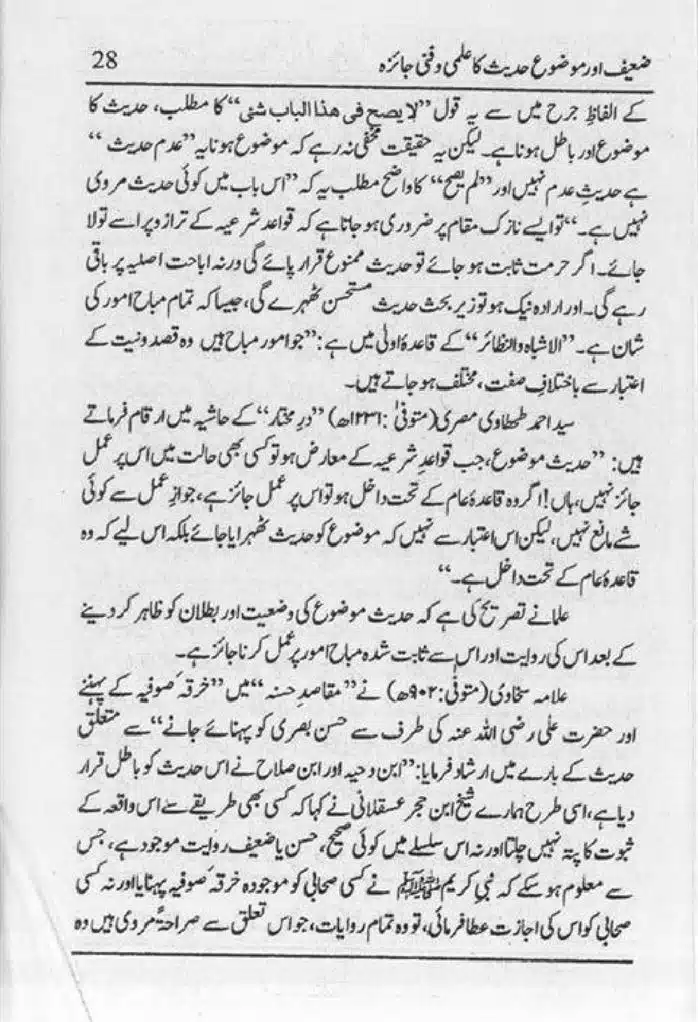 ضعیف اور موضوع حدیث کا علمی و فنی جائزہ 28
کے الفاظِ جرح میں سے یہ قول ”لا یصح فی هذا الباب شئی“ کا مطلب، حدیث کا
موضوع اور باطل ہونا ہے۔ لیکن یہ حقیقت مخفی نہ رہے کہ موضوع ہونا یہ ”عدم حدیث“
ہے حدیثِ عدم نہیں اور ”لم یصح“ کا واضح مطلب یہ کہ ”اس باب میں کوئی حدیث مروی
نہیں ہے۔“ تو ایسے نازک مقام پر ضروری ہو جاتا ہے کہ قواعد شرعیہ کے ترازو پر اسے تولا
جائے۔ اگر حرمت ثابت ہو جائے تو حدیث ممنوع قرار پائے گی ورنہ اباحت اصلیہ پر باقی
رہے گی۔ اور ارادہ نیک ہو تو زیر بحث حدیث مستحسن ٹھہرے گی، جیسا کہ تمام مباح امور کی
شان ہے۔ ”الاشباہ والنظائر“ کے قاعدۂ اولیٰ میں ہے: ”جو امور مباح ہیں وہ قصد و نیت کے
اعتبار سے باختلافِ صفت، مختلف ہو جاتے ہیں۔
سید احمد طحطاوی مصری (متوفیٰ: ۱۲۳۱ھ) ”درِ مختار“ کے حاشیہ میں ارقام فرماتے
ہیں: ”حدیث موضوع، جب قواعدِ شرعیہ کے معارض ہو تو کسی بھی حالت میں اس پر عمل
جائز نہیں، ہاں! اگر وہ قاعدۂ عام کے تحت داخل ہو تو اس پر عمل جائز ہے، جوازِ عمل سے کوئی
شے مانع نہیں، لیکن اس اعتبار سے نہیں کہ موضوع کو حدیث ٹھہرایا جائے بلکہ اس لیے کہ وہ
قاعدۂ عام کے تحت داخل ہے۔“
علما نے تصریح کی ہے کہ حدیث موضوع کی وضعیت اور بطلان کو ظاہر کر دینے
کے بعد اس کی روایت اور اس سے ثابت شدہ مباح امور پر عمل کرنا جائز ہے۔
علامہ سخاوی (متوفیٰ: ۹۰۲ھ) نے ”مقاصدِ حسنہ“ میں ”خرقۂ صوفیہ کے پہننے
اور حضرت علی رضی اللہ عنہ کی طرف سے حسن بصری کو پہنائے جانے“ سے متعلق
حدیث کے بارے میں ارشاد فرمایا: ”ابن دحیہ اور ابن صلاح نے اس حدیث کو باطل قرار
دیا ہے، اسی طرح ہمارے شیخ ابن حجر عسقلانی نے کہا کہ کسی بھی طریقے سے اس واقعہ کے
ثبوت کا پتہ نہیں چلتا اور نہ اس سلسلے میں کوئی صحیح، حسن یا ضعیف روایت موجود ہے، جس
سے معلوم ہو سکے کہ نبی کریم ﷺ نے کسی صحابی کو موجودہ خرقۂ صوفیہ پہنایا اور نہ کسی
صحابی کو اس کی اجازت عطا فرمائی، تو وہ تمام روایات، جو اس تعلق سے صراحۃً مروی ہیں وہ